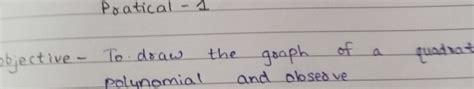 Pratical - 1
objective - To draw the graph of a quadrat
polynomial and observe